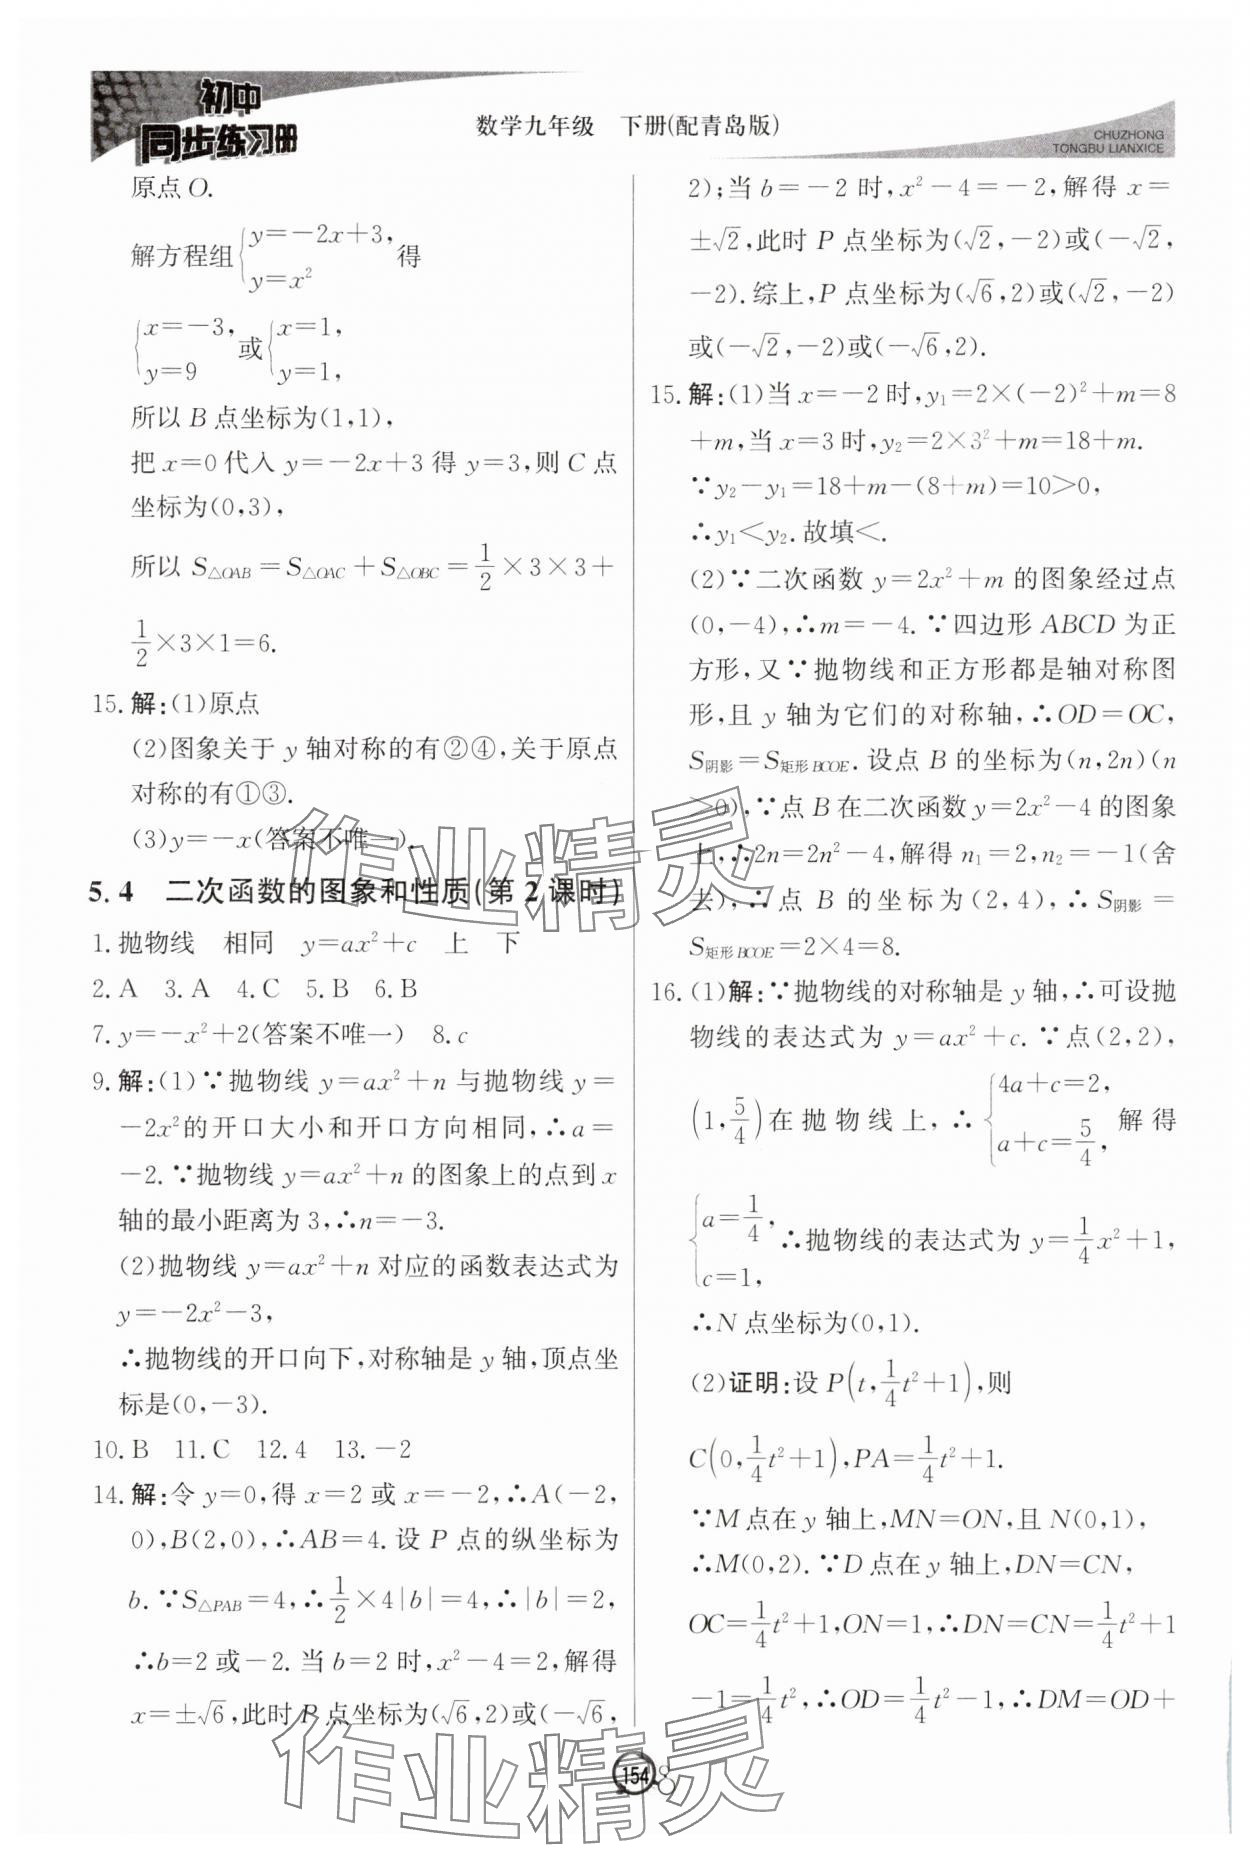 初中
同步练习册
数学九年级 下册(配青岛版)
CHUZHONG
TONGBU LIANXICE
原点O.
解方程组{y=-2x+3, y=x² 得
{x=-3, y=9 或 {x=1, y=1,
所以B点坐标为(1,1),
把x=0代入y=-2x+3得y=3,则C点
坐标为(0,3),
所以S△OAB=S△OAC+S△OBC=1/2×3×3+
1/2×3×1=6.
15.解:(1)原点
(2)图象关于y轴对称的有②④,关于原点
对称的有①③.
(3)y=-x(答案不唯一).
5.4 二次函数的图象和性质(第2课时)
1.抛物线 相同 y=ax²+c 上 下
2.A 3.A 4.C 5.B 6.B
7.y=-x²+2(答案不唯一) 8.c
9.解:(1)∵抛物线y=ax²+n与抛物线y=
-2x²的开口大小和开口方向相同,∴a=
-2.∵抛物线y=ax²+n的图象上的点到x
轴的最小距离为3,∴n=-3.
(2)抛物线y=ax²+n对应的函数表达式为
y=-2x²-3,
∴抛物线的开口向下,对称轴是y轴,顶点坐
标是(0,-3).
10.B 11.C 12.4 13.-2
14.解:令y=0,得x=2或x=-2,∴A(-2,
0),B(2,0),∴AB=4.设P点的纵坐标为
b.∵S△PAB=4,∴1/2×4|b|=4,∴|b|=2,
∴b=2或-2.当b=2时,x²-4=2,解得
x=±√6,此时P点坐标为(√6,2)或(-√6,
2);当b=-2时,x²-4=-2,解得x=
±√2,此时P点坐标为(√2,-2)或(-√2,
-2).综上,P点坐标为(√6,2)或(√2,-2)
或(-√2,-2)或(-√6,2).
15.解:(1)当x=-2时,y₁=2×(-2)²+m=8
+m,当x=3时,y₂=2×3²+m=18+m.
∵y₂-y₁=18+m-(8+m)=10>0,
∴y₁<y₂.故填<.
(2)∵二次函数y=2x²+m的图象经过点
(0,-4),∴m=-4.∵四边形ABCD为正
方形,又∵抛物线和正方形都是轴对称图
形,且y轴为它们的对称轴,∴OD=OC,
S阴影=S矩形BCOE.设点B的坐标为(n,2n)(n
>0),∵点B在二次函数y=2x²-4的图象
上,∴2n=2n²-4,解得n₁=2,n₂=-1(舍
去),∴点B的坐标为(2,4),∴S阴影=
S矩形BCOE=2×4=8.
16.(1)解:∵抛物线的对称轴是y轴,∴可设抛
物线的表达式为y=ax²+c.∵点(2,2),
(1,5/4)在抛物线上,∴{4a+c=2, a+c=5/4, 解得
{a=1/4, c=1, ∴抛物线的表达式为y=1/4x²+1,
∴N点坐标为(0,1).
(2)证明:设P(t,1/4t²+1),则
C(0,1/4t²+1),PA=1/4t²+1.
∵M点在y轴上,MN=ON,且N(0,1),
∴M(0,2).∵D点在y轴上,DN=CN,
OC=1/4t²+1,ON=1,∴DN=CN=1/4t²+1
-1=1/4t²,∴OD=1/4t²-1,∴DM=OD+
154
作业精灵
作业精灵